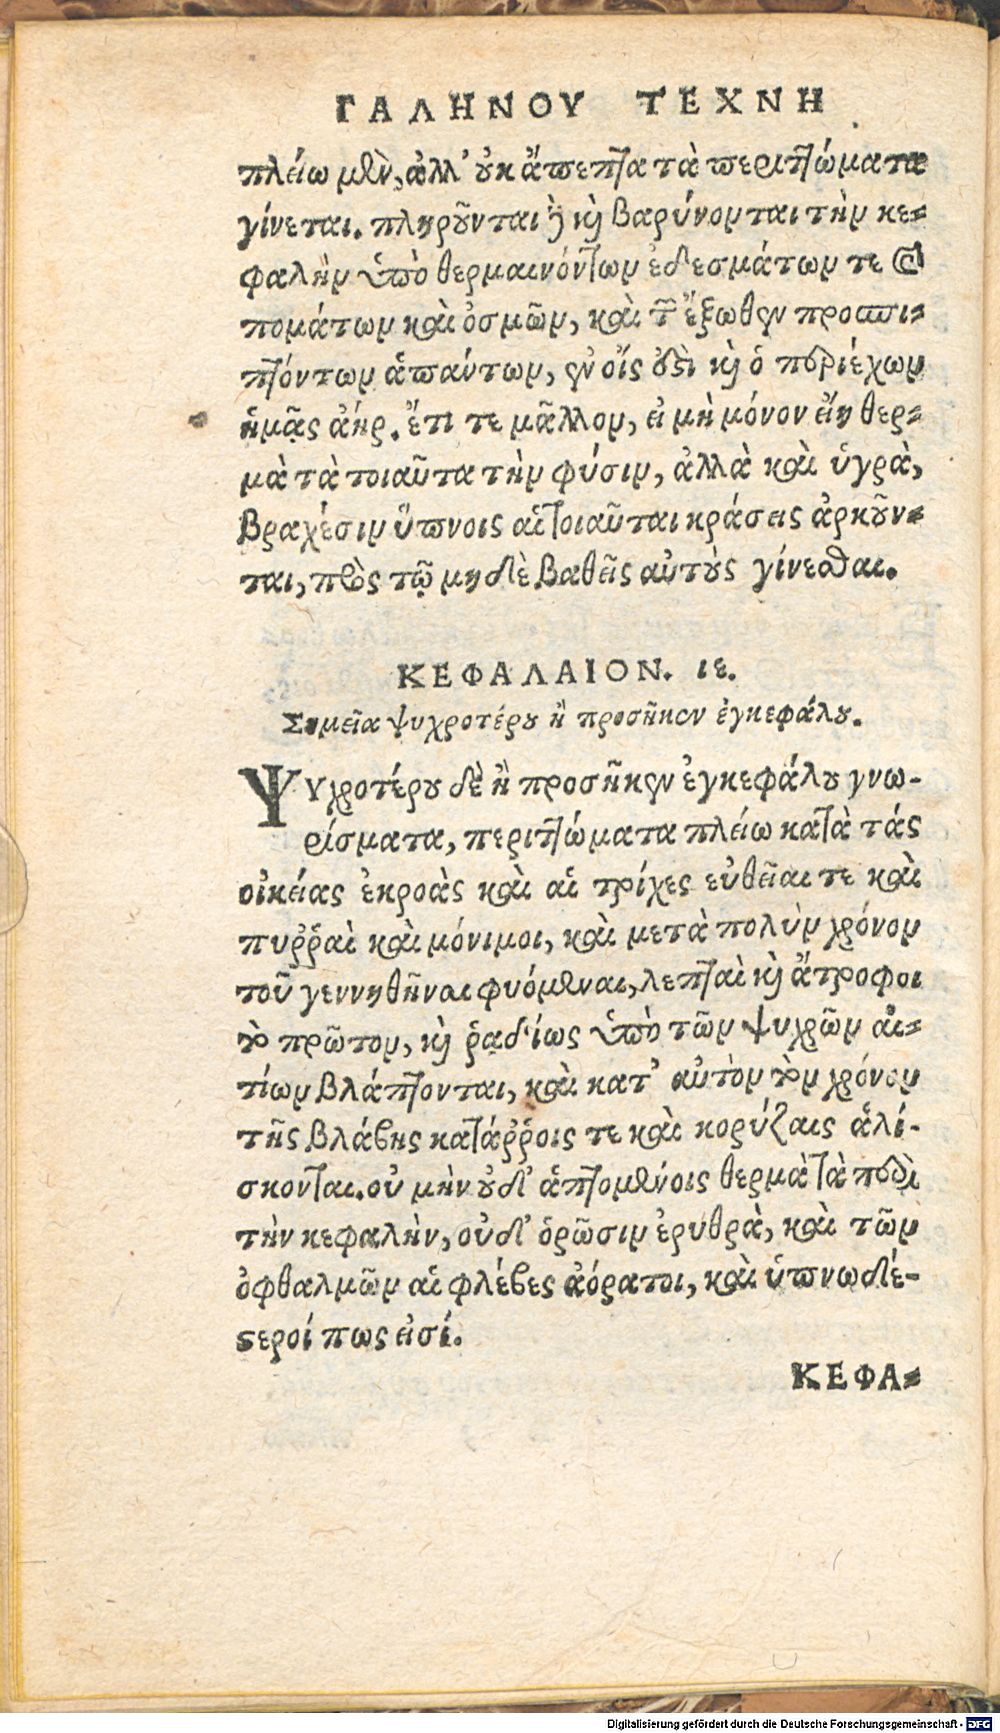 ΓΑΛΗΝΟΥ ΤΕΧΝΗ
πλείω μὲν, ἀλλ' οὐκ ἄπεπτα τὰ περιττώματα
γίνεται. πληροῦνται δὲ καὶ βαρύνονται τὴν κε-
φαλὴν ὑπὸ θερμαινόντων ἐδεσμάτων τε καὶ
πομάτων καὶ ὀσμῶν, καὶ τῶν ἔξωθεν προσπι-
πτόντων ἁπάντων, ἐν οἷς ἐστὶ καὶ ὁ περιέχων
ἡμᾶς ἀήρ. ἔτι τε μᾶλλον, εἰ μὴ μόνον εἴη θερ-
μὰ τὰ τοιαῦτα τὴν φύσιν, ἀλλὰ καὶ ὑγρὰ,
βραχέσιν ὕπνοις αἱ τοιαῦται κράσεις ἀρκοῦν-
ται, πρὸς τῷ μηδὲ βαθεῖς αὐτοὺς γίνεσθαι.
ΚΕΦΑΛΑΙΟΝ. ιε.
Σημεῖα ψυχροτέρου ἢ προσῆκον ἐγκεφάλου.
ΨΥχροτέρου δὲ ἢ προσῆκεν ἐγκεφάλου γνω-
ρίσματα, περιττώματα πλείω κατὰ τάς
οἰκείας ἐκροὰς καὶ αἱ τρίχες εὐθεῖαι τε καὶ
πυῤῥαὶ καὶ μόνιμοι, καὶ μετὰ πολὺν χρόνον
τοῦ γεννηθῆναι φυόμεναι, λεπταὶ καὶ ἄτροφοι
τὸ πρῶτον, καὶ ῥᾳδίως ὑπὸ τῶν ψυχρῶν αἰ-
τίων βλάπτονται, καὶ κατ' αὐτὸν τὸν χρόνον
τῆς βλάβης κατάῤῥοις τε καὶ κορύζαις ἁλί-
σκονται. οὐ μὴν οὐδ' ἁπτομένοις θερμὰ τὰ περὶ
τὴν κεφαλὴν, οὐδ' ὁρῶσιν ἐρυθρὰ, καὶ τῶν
ὀφθαλμῶν αἱ φλέβες ἀόρατοι, καὶ ὑπνωδέ-
στεροί πως εἰσί.
ΚΕΦΑ-
Digitalisierung gefördert durch die Deutsche Forschungsgemeinschaft - DFG